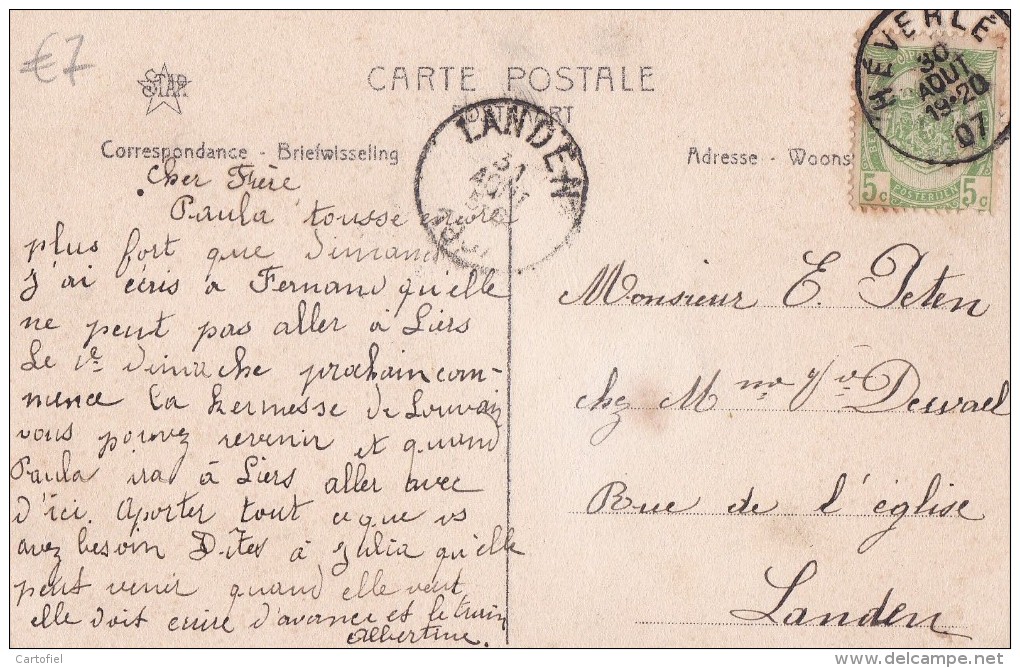 €7
STAR
CARTE POSTALE
Correspondance - Briefwisseling
Adresse - Woons
HÉVERLÉ
30
AOUT
19-20
07
LANDEN
31
AOUT
5c POSTERIJEN 5c
Cher Frère
Paula tousse encore
plus fort que dimanc
J'ai écris a Fernand qu'elle
ne peut pas aller à Liers
Le dimache prochain com-
mence la kermesse de Louvain
vous pouvez revenir et quand
Paula ira à Liers aller avec
d'ici. Aporter tout ce que vs
avez besoin Dites à Julia qu'elle
peut venir quand elle veut,
elle doit ecrire d'avance et le train
Albertine.
Monsieur E. Peten
chez Mme Vve Dewael
Rue de l'église
Landen
Cartofiel
www.delcampe.net